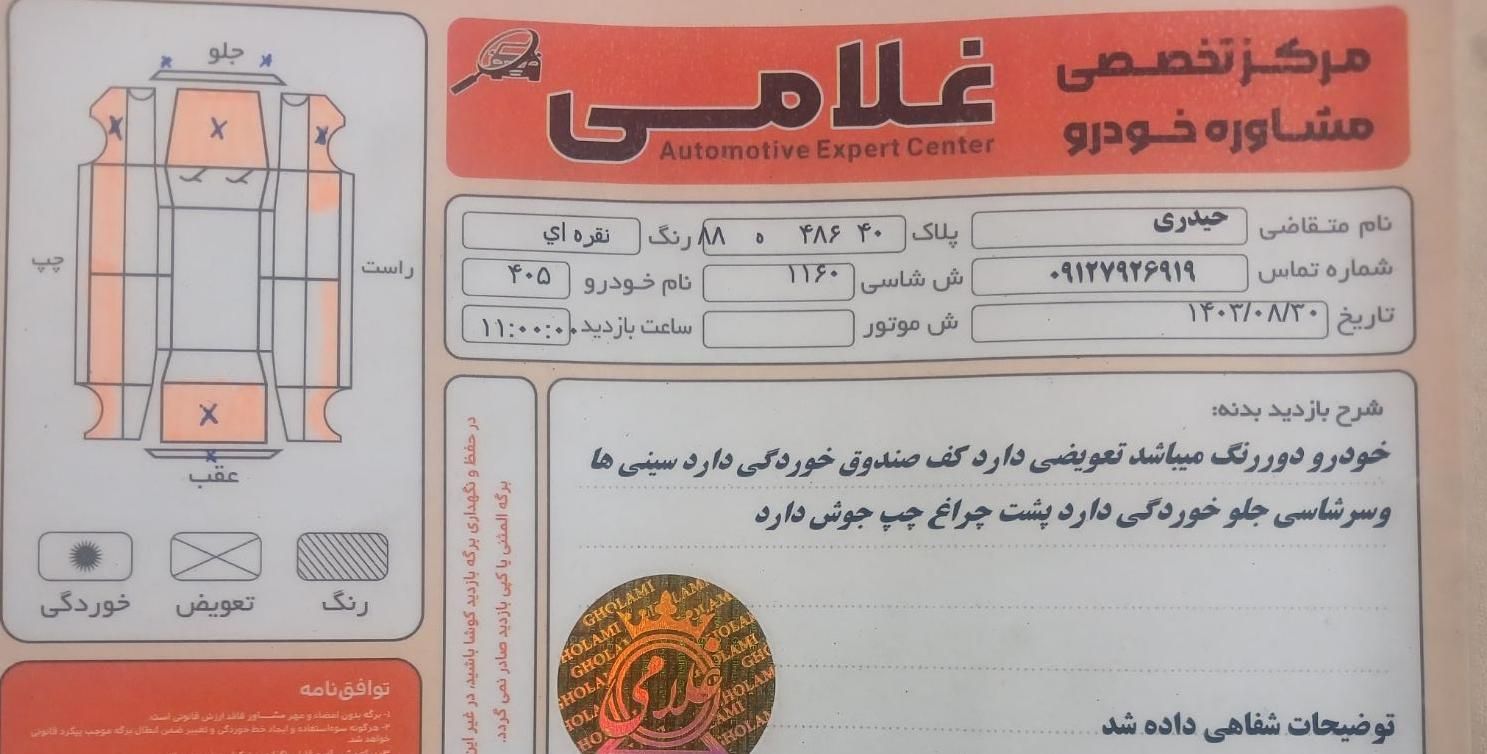 مرکز تخصصی
مشاوره خودرو
غلامی
Automotive Expert Center
نام متقاضی حیدری پلاک ۴۰ ۴۸۶ ه ۸۸ رنگ نقره اي
شماره تماس ۰۹۱۲۷۹۲۶۹۱۹ ش شاسی ۱۱۶۰ نام خودرو ۴۰۵
تاریخ ۱۴۰۳/۰۸/۳۰ ش موتور ساعت بازدید ۱۱:۰۰:۰۰
شرح بازدید بدنه:
خودرو دوررنگ میباشد تعویضی دارد کف صندوق خوردگی دارد سینی ها
وسرشاسی جلو خوردگی دارد پشت چراغ چپ جوش دارد
توضیحات شفاهی داده شد
در حفظ و نگهداری برگه بازدید کوشا باشید، در غیر این
برگه المثنی یا کپی بازدید صادر نمی گردد.
GHOLAMI
غلامی
جلو
راست
چپ
عقب
رنگ
تعویض
خوردگی
توافق‌نامه
۱- برگه بدون امضاء و مهر مشاور فاقد ارزش قانونی است.
۲- هرگونه سوءاستفاده و ایجاد خط خوردگی و تغییر ضمن ابطال برگه موجب پیگرد قانونی
خواهد شد.